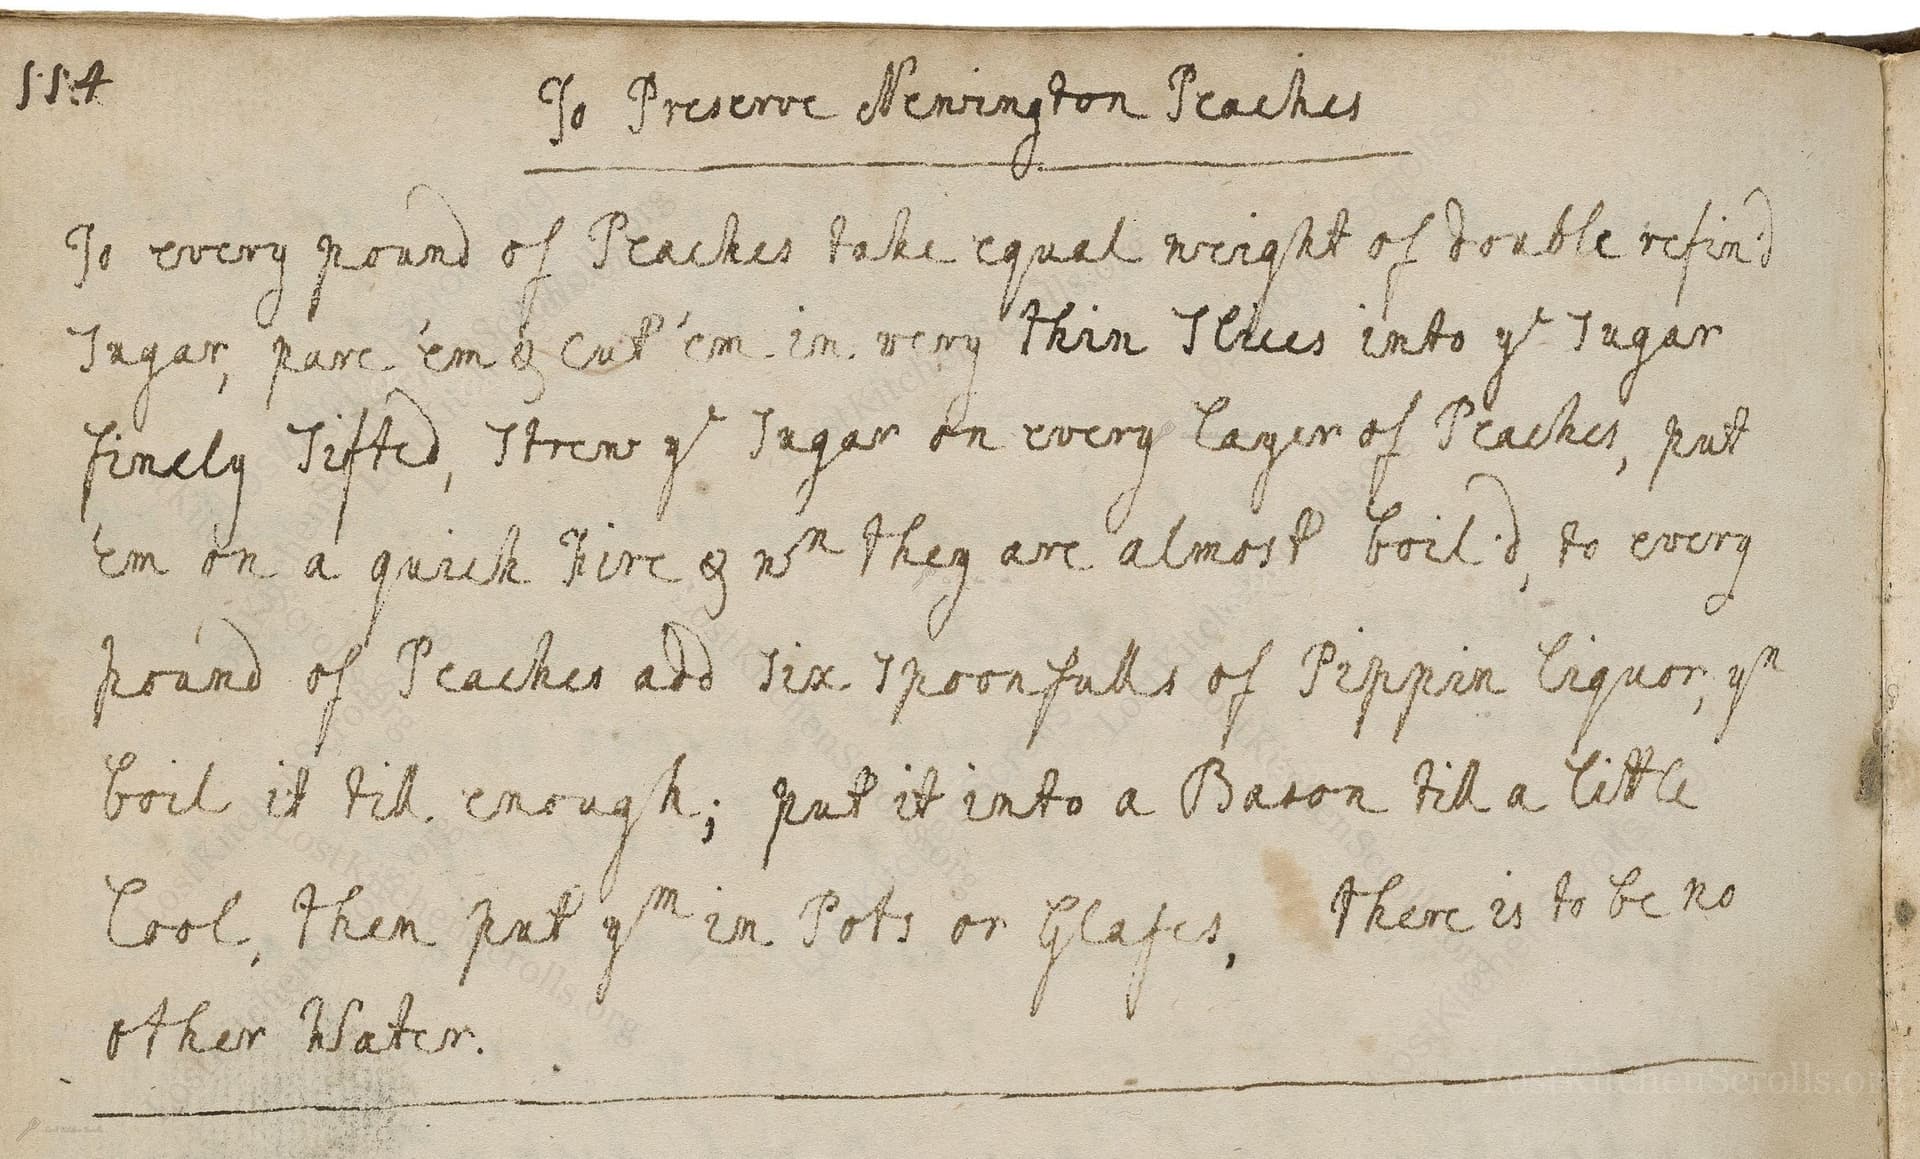 554
To Preserve Newington Peaches
To every pound of Peaches take equal weight of double refin'd
Sugar, pare 'em & cut 'em in very thin Slices into yᵉ Sugar
finely Sifted, Strew yᵉ Sugar on every Layer of Peaches, put
'em on a quick Fire & wⁿ they are almost boil'd, to every
pound of Peaches add Six Spoonfulls of Pippin Liquor, yⁿ
boil it till enough; put it into a Bason till a little
Cool, then put yᵐ in Pots or Glaſses, there is to be no
other Water.
LostKitchenScrolls.org